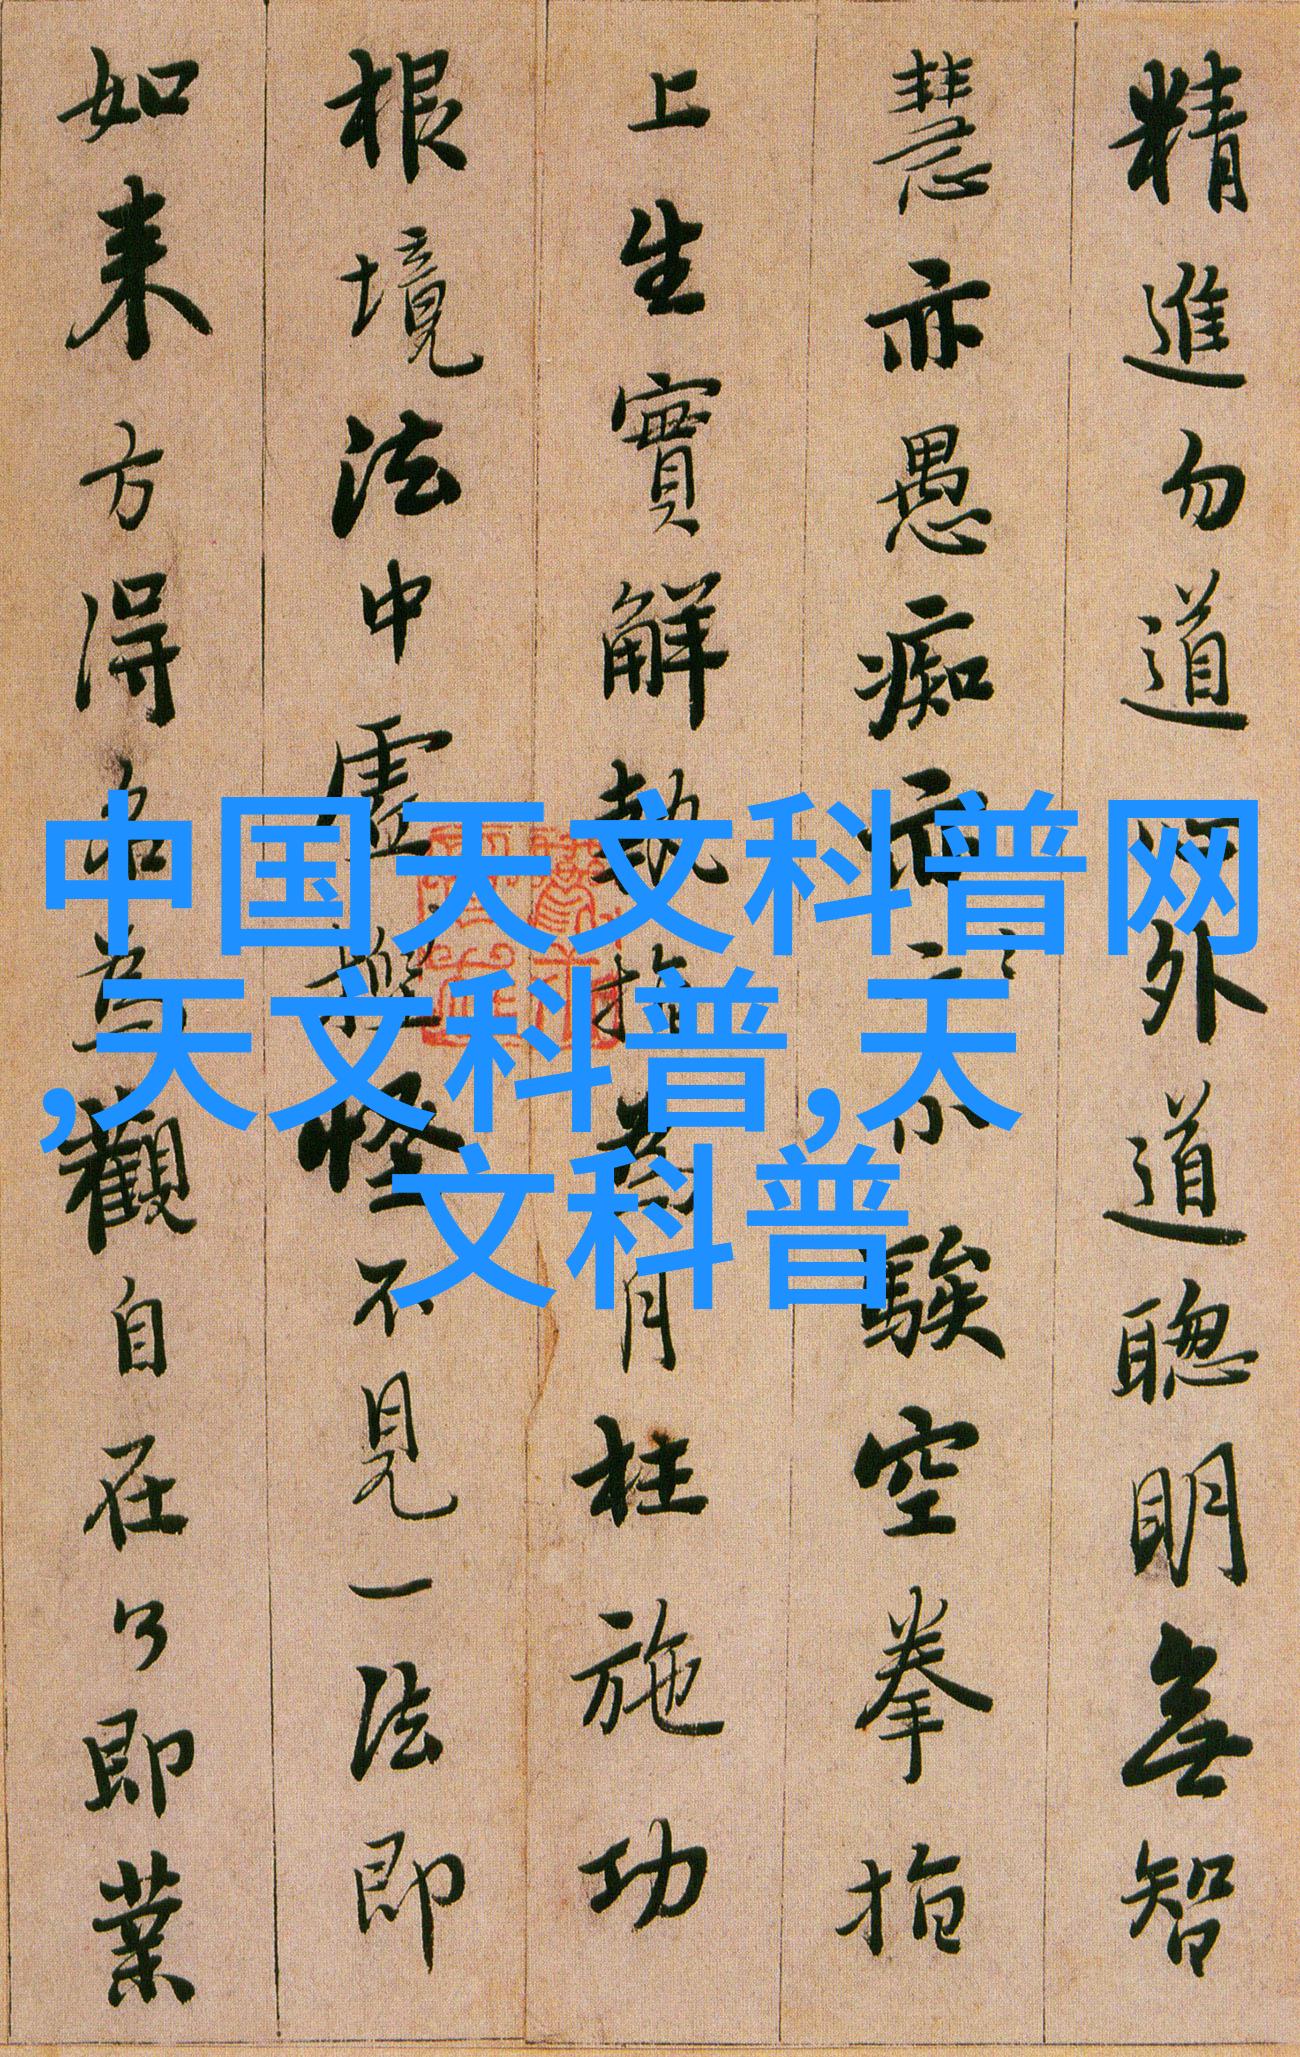 精進勿道外道聰明無智
慧亦愚痴亦小騃空拳指
上生實解執指為月枉施功
根境法中虛捏怪不見一法即
如来方得名為觀自在了即業
中国天文科普网
,天文科普,天
文科普